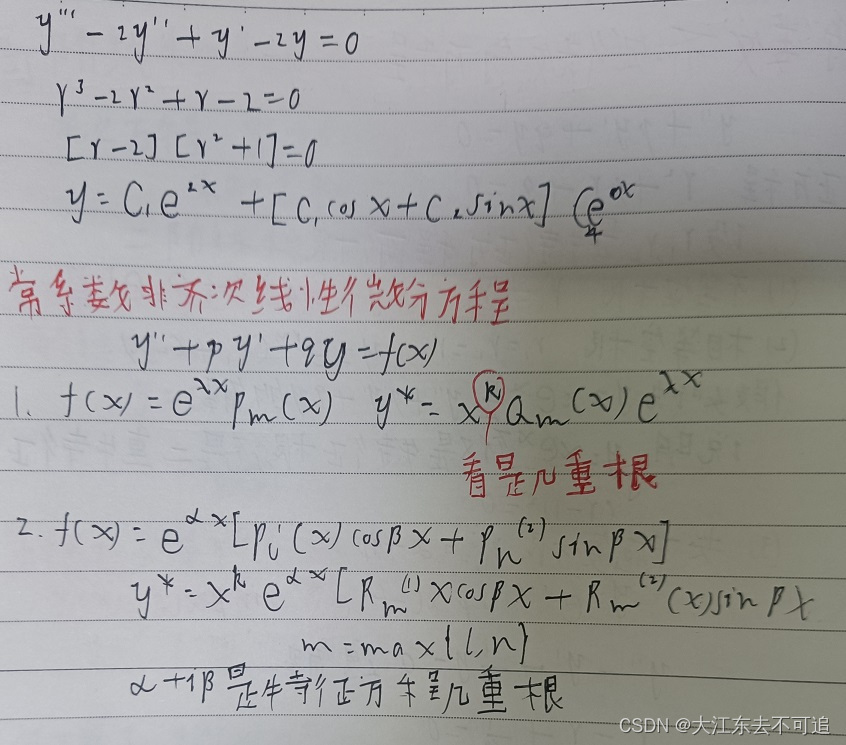 y''' - 2y'' + y' - 2y = 0
r³ - 2r² + r - 2 = 0
[r-2] [r²+1] = 0
y = C₁e²ˣ + [C₁cosx + C₂sinx] (e⁰ˣ
4
常系数非齐次线性微分方程
y'' + py' + qy = f(x)
1. f(x) = e^λx Pm(x) y* = x^k Qm(x) e^λx
看是几重根
2. f(x) = e^αx [Pl(x) cosβx + Pn^(2) sinβx]
y* = x^k e^αx [Rm^(1) x cosβx + Rm^(2) (x) sinβx
m = max{l,n}
α+iβ是特征方程几重根
CSDN @大江东去不可追